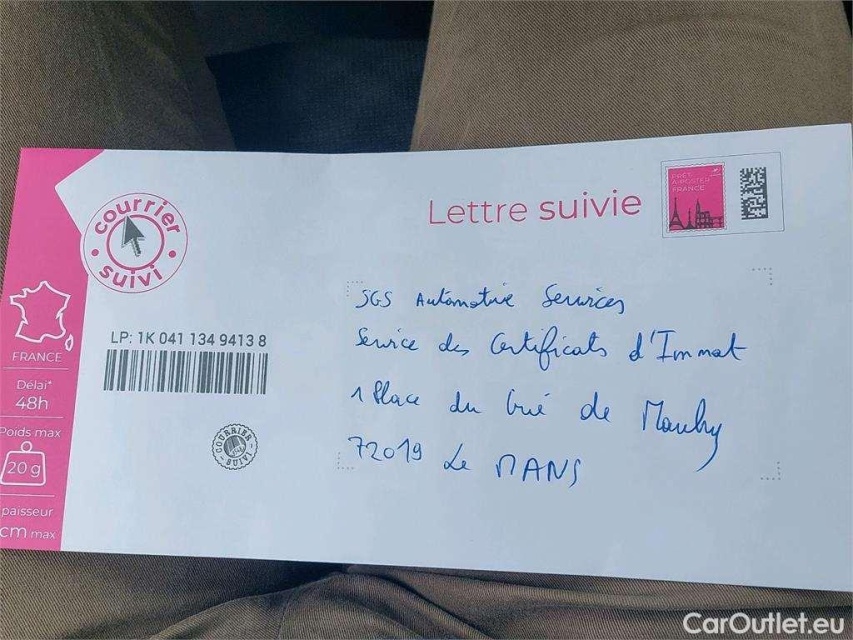 courrier
suivi
Lettre suivie
PRÊT-
À-POSTER
FRANCE
FRANCE
Délai*
48h
Poids max
20 g
paisseur
cm max
LP: 1K 041 134 9413 8
COURRIER
SUIVI
SGS Automotive Services
Service des Certificats d'Immat
1 Place du Gué de Maulny
72019 Le MANS
CarOutlet.eu